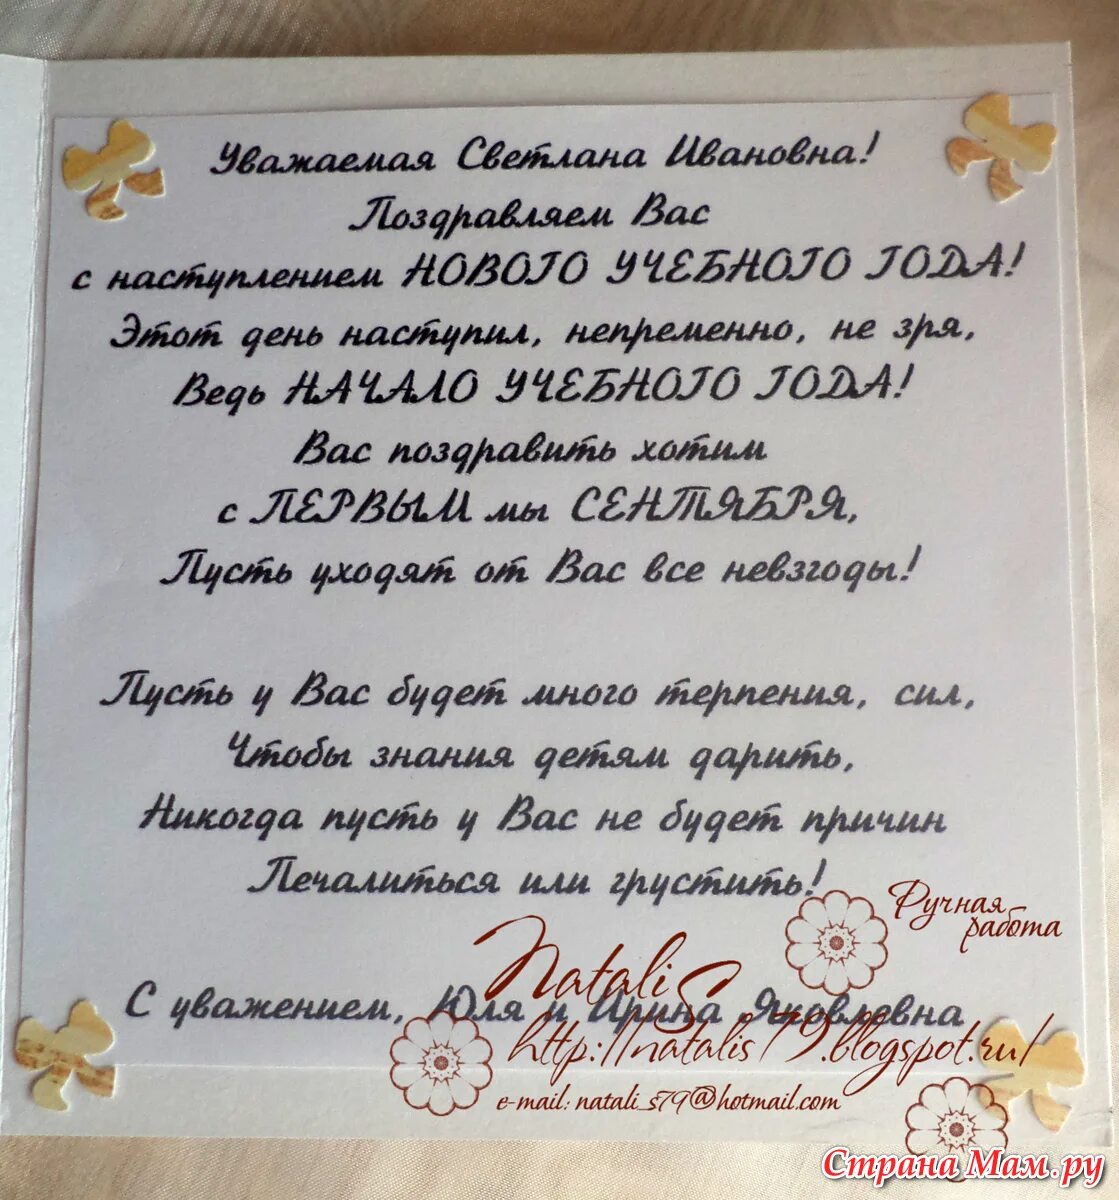 Уважаемая Светлана Ивановна!
Поздравляем Вас
с наступлением НОВОГО УЧЕБНОГО ГОДА!
Этот день наступил, непременно, не зря,
Ведь НАЧАЛО УЧЕБНОГО ГОДА!
Вас поздравить хотим
с ПЕРВЫМ мы СЕНТЯБРЯ,
Пусть уходят от Вас все невзгоды!
Пусть у Вас будет много терпения, сил,
Чтобы знания детям дарить,
Никогда пусть у Вас не будет причин
Печалиться или грустить!
Ручная
работа
Natali S
С уважением, Юля и Ирина Яковлевна
http://natalis79.blogspot.ru/
e-mail: natali_s79@hotmail.com
Страна Мам.ру